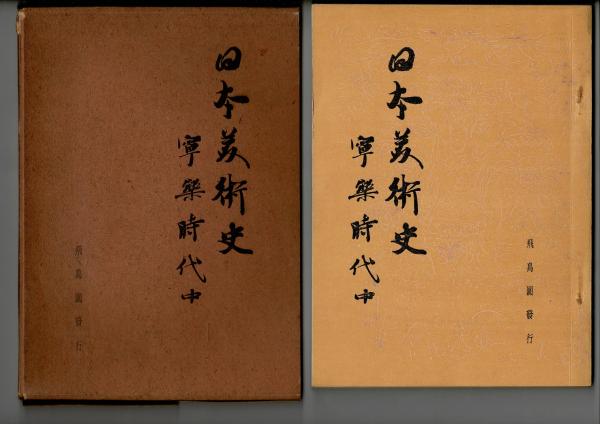 日本美術史
寧樂時代中
飛鳥園發行
日本美術史
寧樂時代中
飛鳥園發行